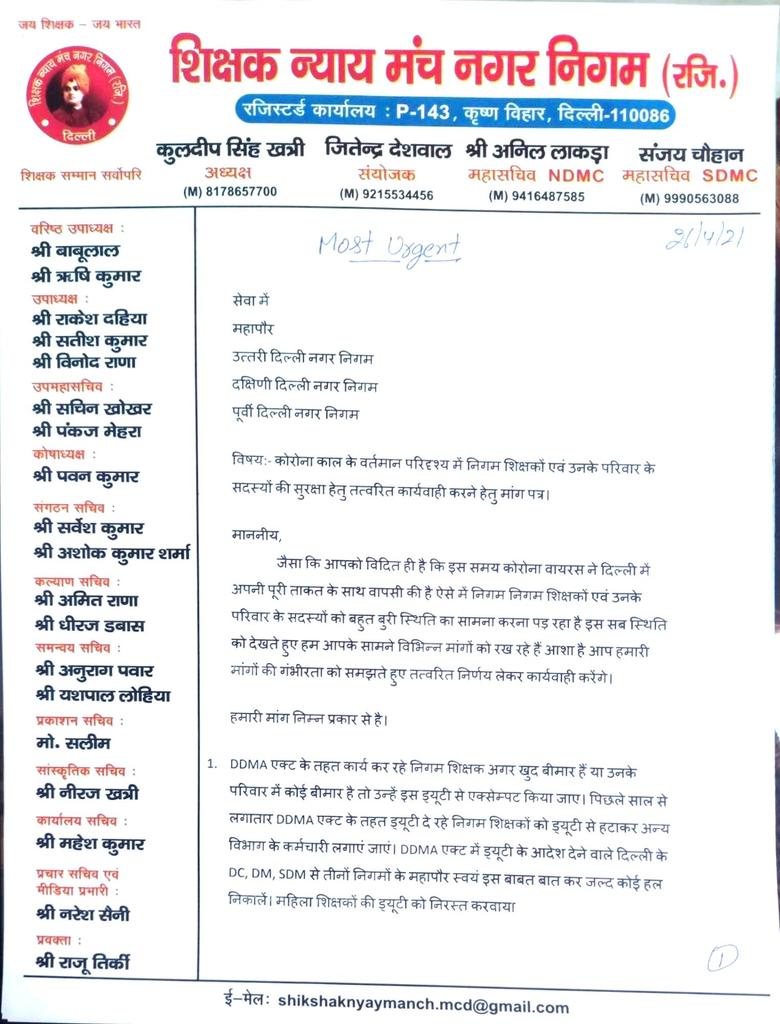 जय शिक्षक – जय भारत
शिक्षक न्याय मंच नगर निगम (रजि.)
शिक्षक न्याय मंच नगर निगम (रजि)
दिल्ली
रजिस्टर्ड कार्यालय : P-143, कृष्ण विहार, दिल्ली-110086
कुलदीप सिंह खत्री जितेन्द्र देशवाल श्री अनिल लाकड़ा संजय चौहान
शिक्षक सम्मान सर्वोपरि
अध्यक्ष संयोजक महासचिव NDMC महासचिव SDMC
(M) 8178657700 (M) 9215534456 (M) 9416487585 (M) 9990563088
वरिष्ठ उपाध्यक्ष :
श्री बाबूलाल
श्री ऋषि कुमार
उपाध्यक्ष :
श्री राकेश दहिया
श्री सतीश कुमार
श्री विनोद राणा
उपमहासचिव :
श्री सचिन खोखर
श्री पंकज मेहरा
कोषाध्यक्ष :
श्री पवन कुमार
संगठन सचिव :
श्री सर्वेश कुमार
श्री अशोक कुमार शर्मा
कल्याण सचिव :
श्री अमित राणा
श्री धीरज डबास
समन्वय सचिव :
श्री अनुराग पवार
श्री यशपाल लोहिया
प्रकाशन सचिव :
मो. सलीम
सांस्कृतिक सचिव :
श्री नीरज खत्री
कार्यालय सचिव :
श्री महेश कुमार
प्रचार सचिव एवं
मीडिया प्रभारी :
श्री नरेश सैनी
प्रवक्ता :
श्री राजू तिर्की
Most Urgent
26/4/21
सेवा में
महापौर
उत्तरी दिल्ली नगर निगम
दक्षिणी दिल्ली नगर निगम
पूर्वी दिल्ली नगर निगम
विषय:- कोरोना काल के वर्तमान परिदृश्य में निगम शिक्षकों एवं उनके परिवार के
सदस्यों की सुरक्षा हेतु तत्वरित कार्यवाही करने हेतु मांग पत्र।
माननीय,
जैसा कि आपको विदित ही है कि इस समय कोरोना वायरस ने दिल्ली में
अपनी पूरी ताकत के साथ वापसी की है ऐसे में निगम निगम शिक्षकों एवं उनके
परिवार के सदस्यों को बहुत बुरी स्थिति का सामना करना पड़ रहा है इस सब स्थिति
को देखते हुए हम आपके सामने विभिन्न मांगों को रख रहे हैं आशा है आप हमारी
मांगों की गंभीरता को समझते हुए तत्वरित निर्णय लेकर कार्यवाही करेंगे।
हमारी मांग निम्न प्रकार से है।
1. DDMA एक्ट के तहत कार्य कर रहे निगम शिक्षक अगर खुद बीमार हैं या उनके
परिवार में कोई बीमार है तो उन्हें इस ड्यूटी से एक्सेम्पट किया जाए। पिछले साल से
लगातार DDMA एक्ट के तहत ड्यूटी दे रहे निगम शिक्षकों को ड्यूटी से हटाकर अन्य
विभाग के कर्मचारी लगाएं जाएं। DDMA एक्ट में ड्यूटी के आदेश देने वाले दिल्ली के
DC, DM, SDM से तीनों निगमों के महापौर स्वयं इस बाबत बात कर जल्द कोई हल
निकालें। महिला शिक्षकों की ड्यूटी को निरस्त करवाया
1
ई-मेल: shikshaknyaymanch.mcd@gmail.com